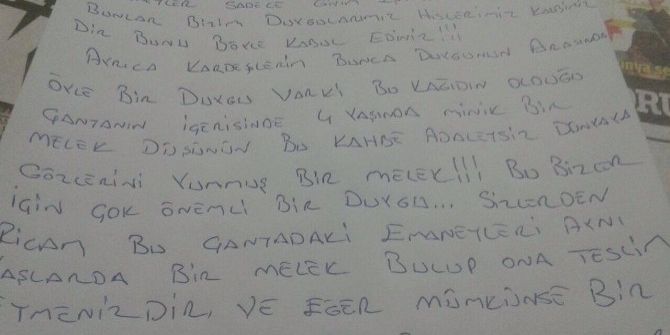 SADECE
BUNLAR BİZİM DUYGULARIMIZ HİSLERİMİZ KALBİMİZ
DİR BUNU BÖYLE KABUL EDİNİZ!!!
AYRICA KARDEŞLERİM BUNCA DUYGUNUN ARASINDA
ÖYLE BİR DUYGU VARKİ BU KAĞIDIN OLDUĞU
ÇANTANIN İÇERİSİNDE 4 YAŞINDA MİNİK BİR
MELEK DÜŞÜNÜN BU KAHBE ADALETSİZ DÜNYAYA
GÖZLERİNİ YUMMUŞ BİR MELEK!!! BU BİZLER
İÇİN ÇOK ÖNEMLİ BİR DUYGU... SİZLERDEN
RİCAM BU ÇANTADAKİ EMANETLERİ AYNI
YAŞLARDA BİR MELEK BULUP ONA TESLİM
ETMENİZDİR. VE EĞER MÜMKÜNSE BİR